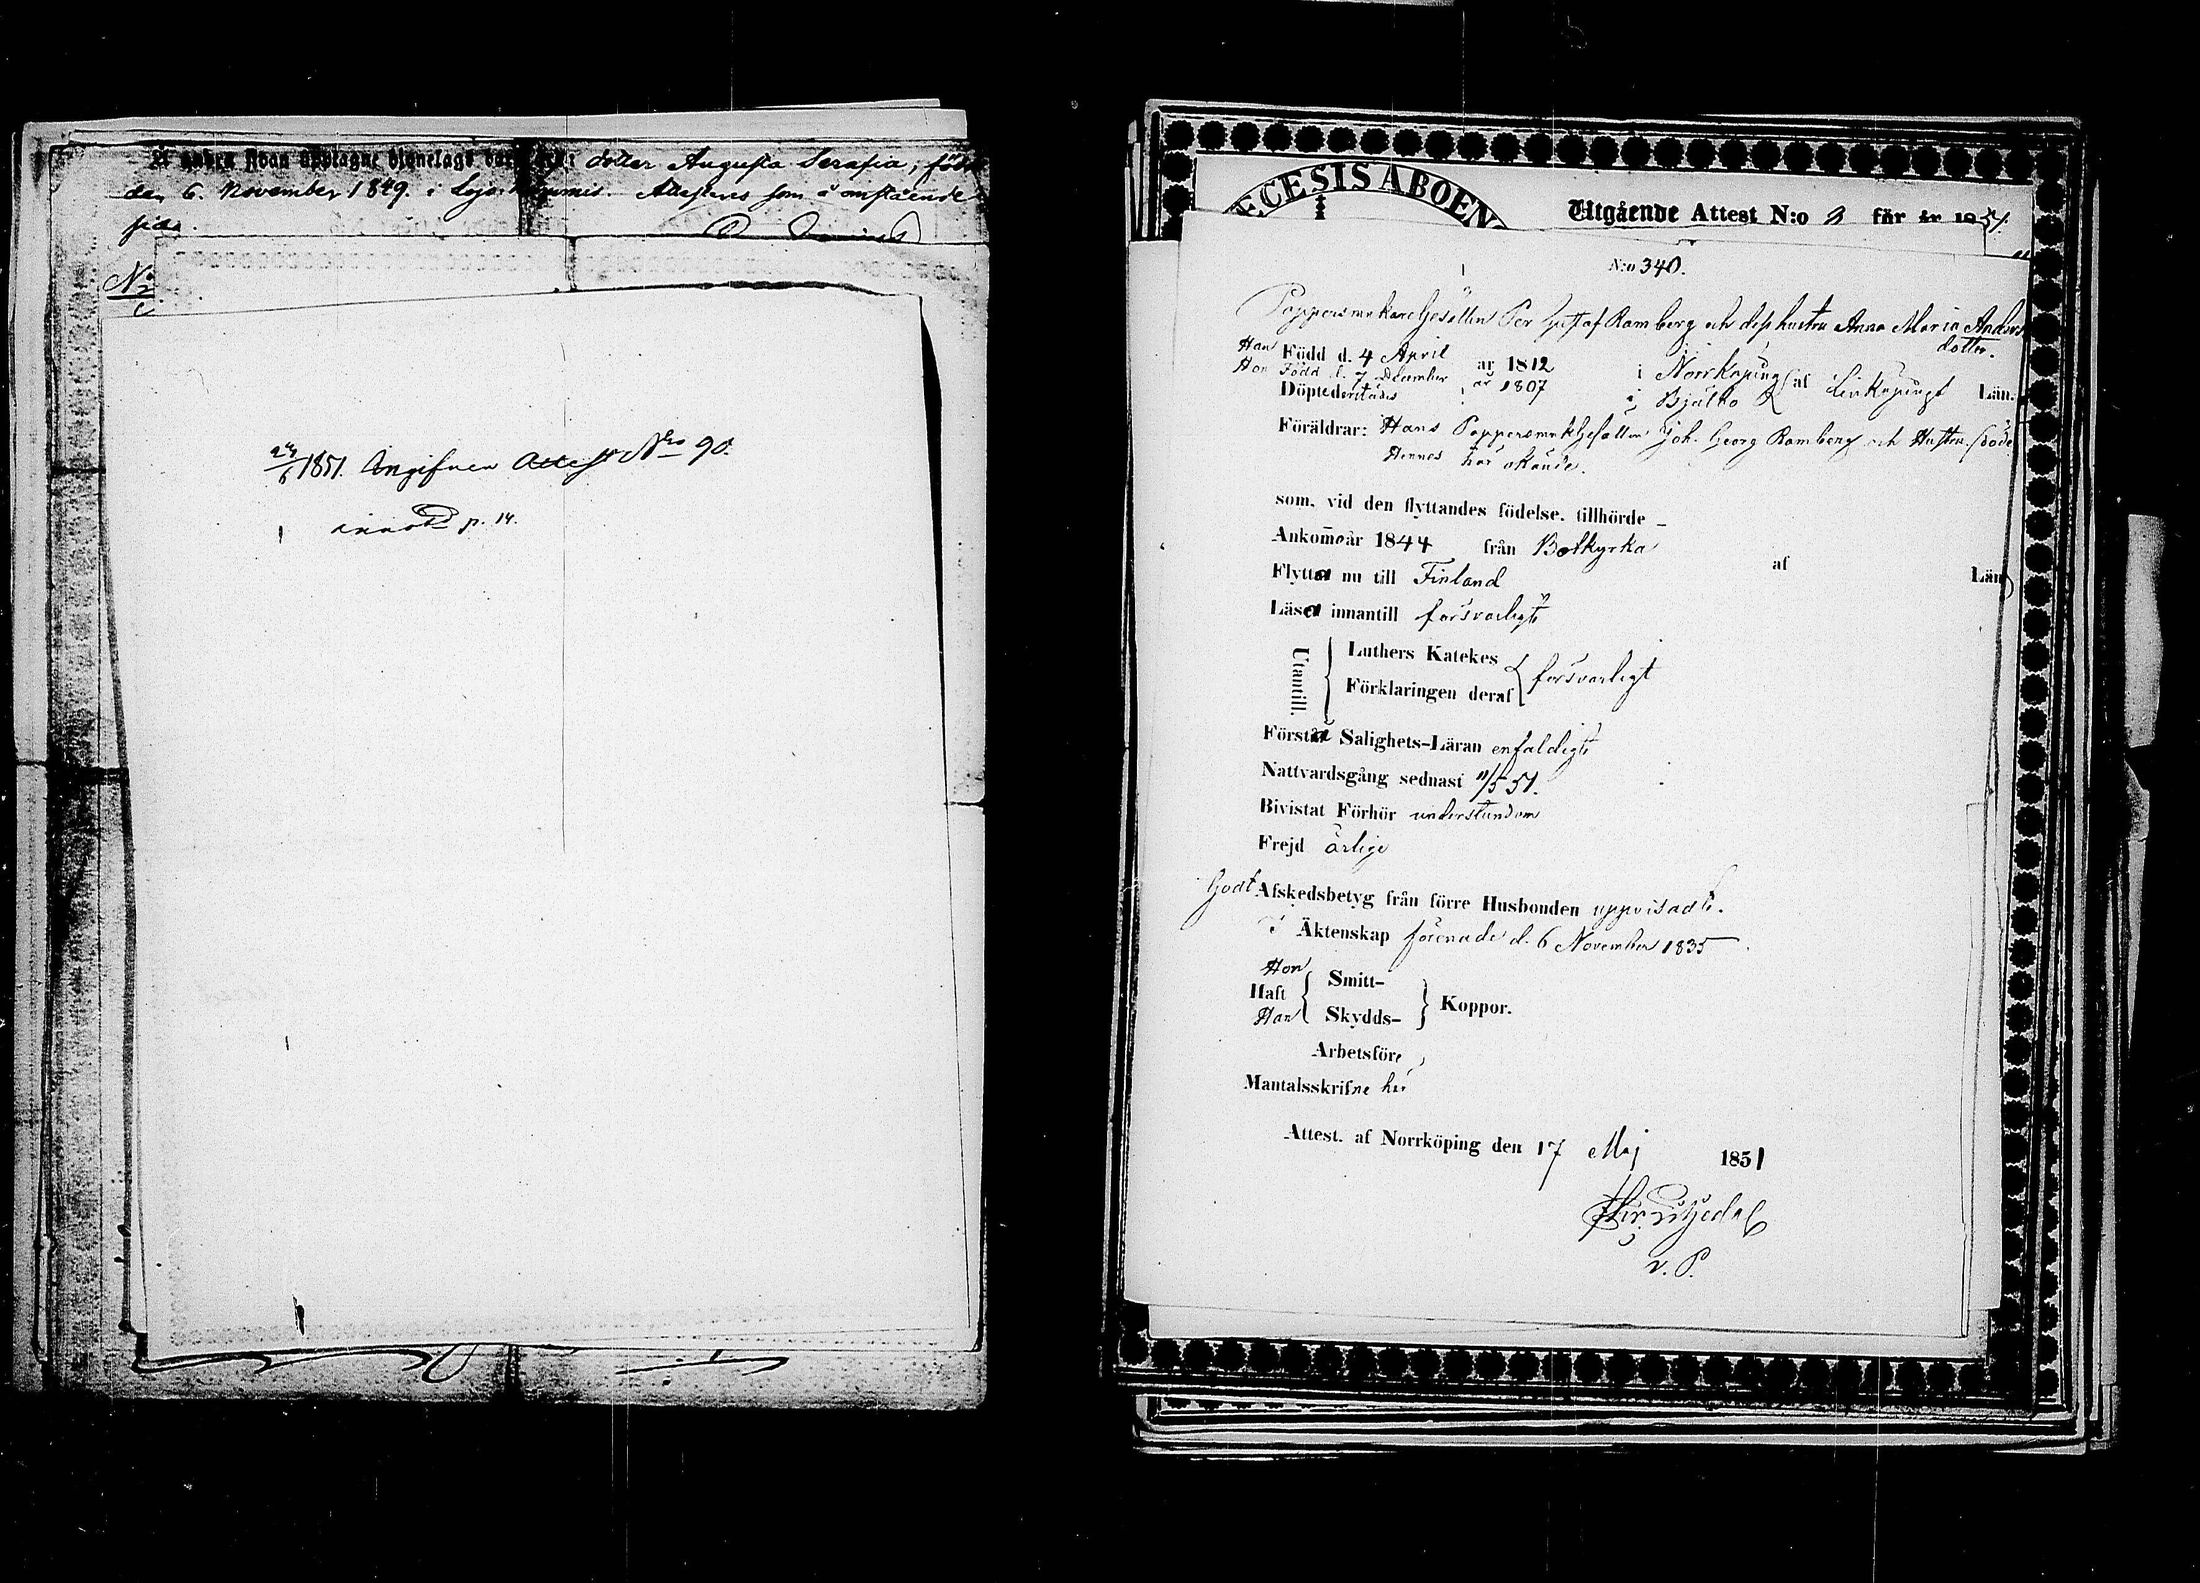 dotter Augusta Serafia, född
den 6. November 1849. i Lojo Nummis. Attesteras som å omstående
sida.
24/6 1851. Angifven Attest Nro 90.
annot. p. 14.
ECESIS ABOEN
Utgående Attest N:o 2 för år 1851.
N:o 340.
Pappersmakare Gesällen Per Gustaf Ramberg och dess hustru Anna Maria Anders
dotter.
Han Född d. 4 April år 1812 i Norrköping af Linköpings Län.
Hon Född d. 7 December år 1807 i Bjälbo
Döpte derstädes
Föräldrar: Hans Pappersmak Gesällen Joh. Georg Ramberg och Hustru
Hennes här okände.
som, vid den flyttandes födelse, tillhörde –
Ankommo år 1844 från Botkyrka
Flytta nu till Finland af Län
Läsa innantill försvarligt
Utantill. Luthers Katekes
Förklaringen deraf försvarligt
Förstå Salighets-Läran enfaldigt
Nattvardsgång sednast 11/5 51.
Bivistat Förhör understundom
Frejd ärlige
Godt Afskedsbetyg från förre Husbonden uppvisadt.
I Äktenskap förenade d. 6 November 1835
Hon
Haft Smitt-
Han Skydds- Koppor.
Arbetsföre
Mantalsskrifne här
Attest. af Norrköping den 17 Maj 1851
v. P.